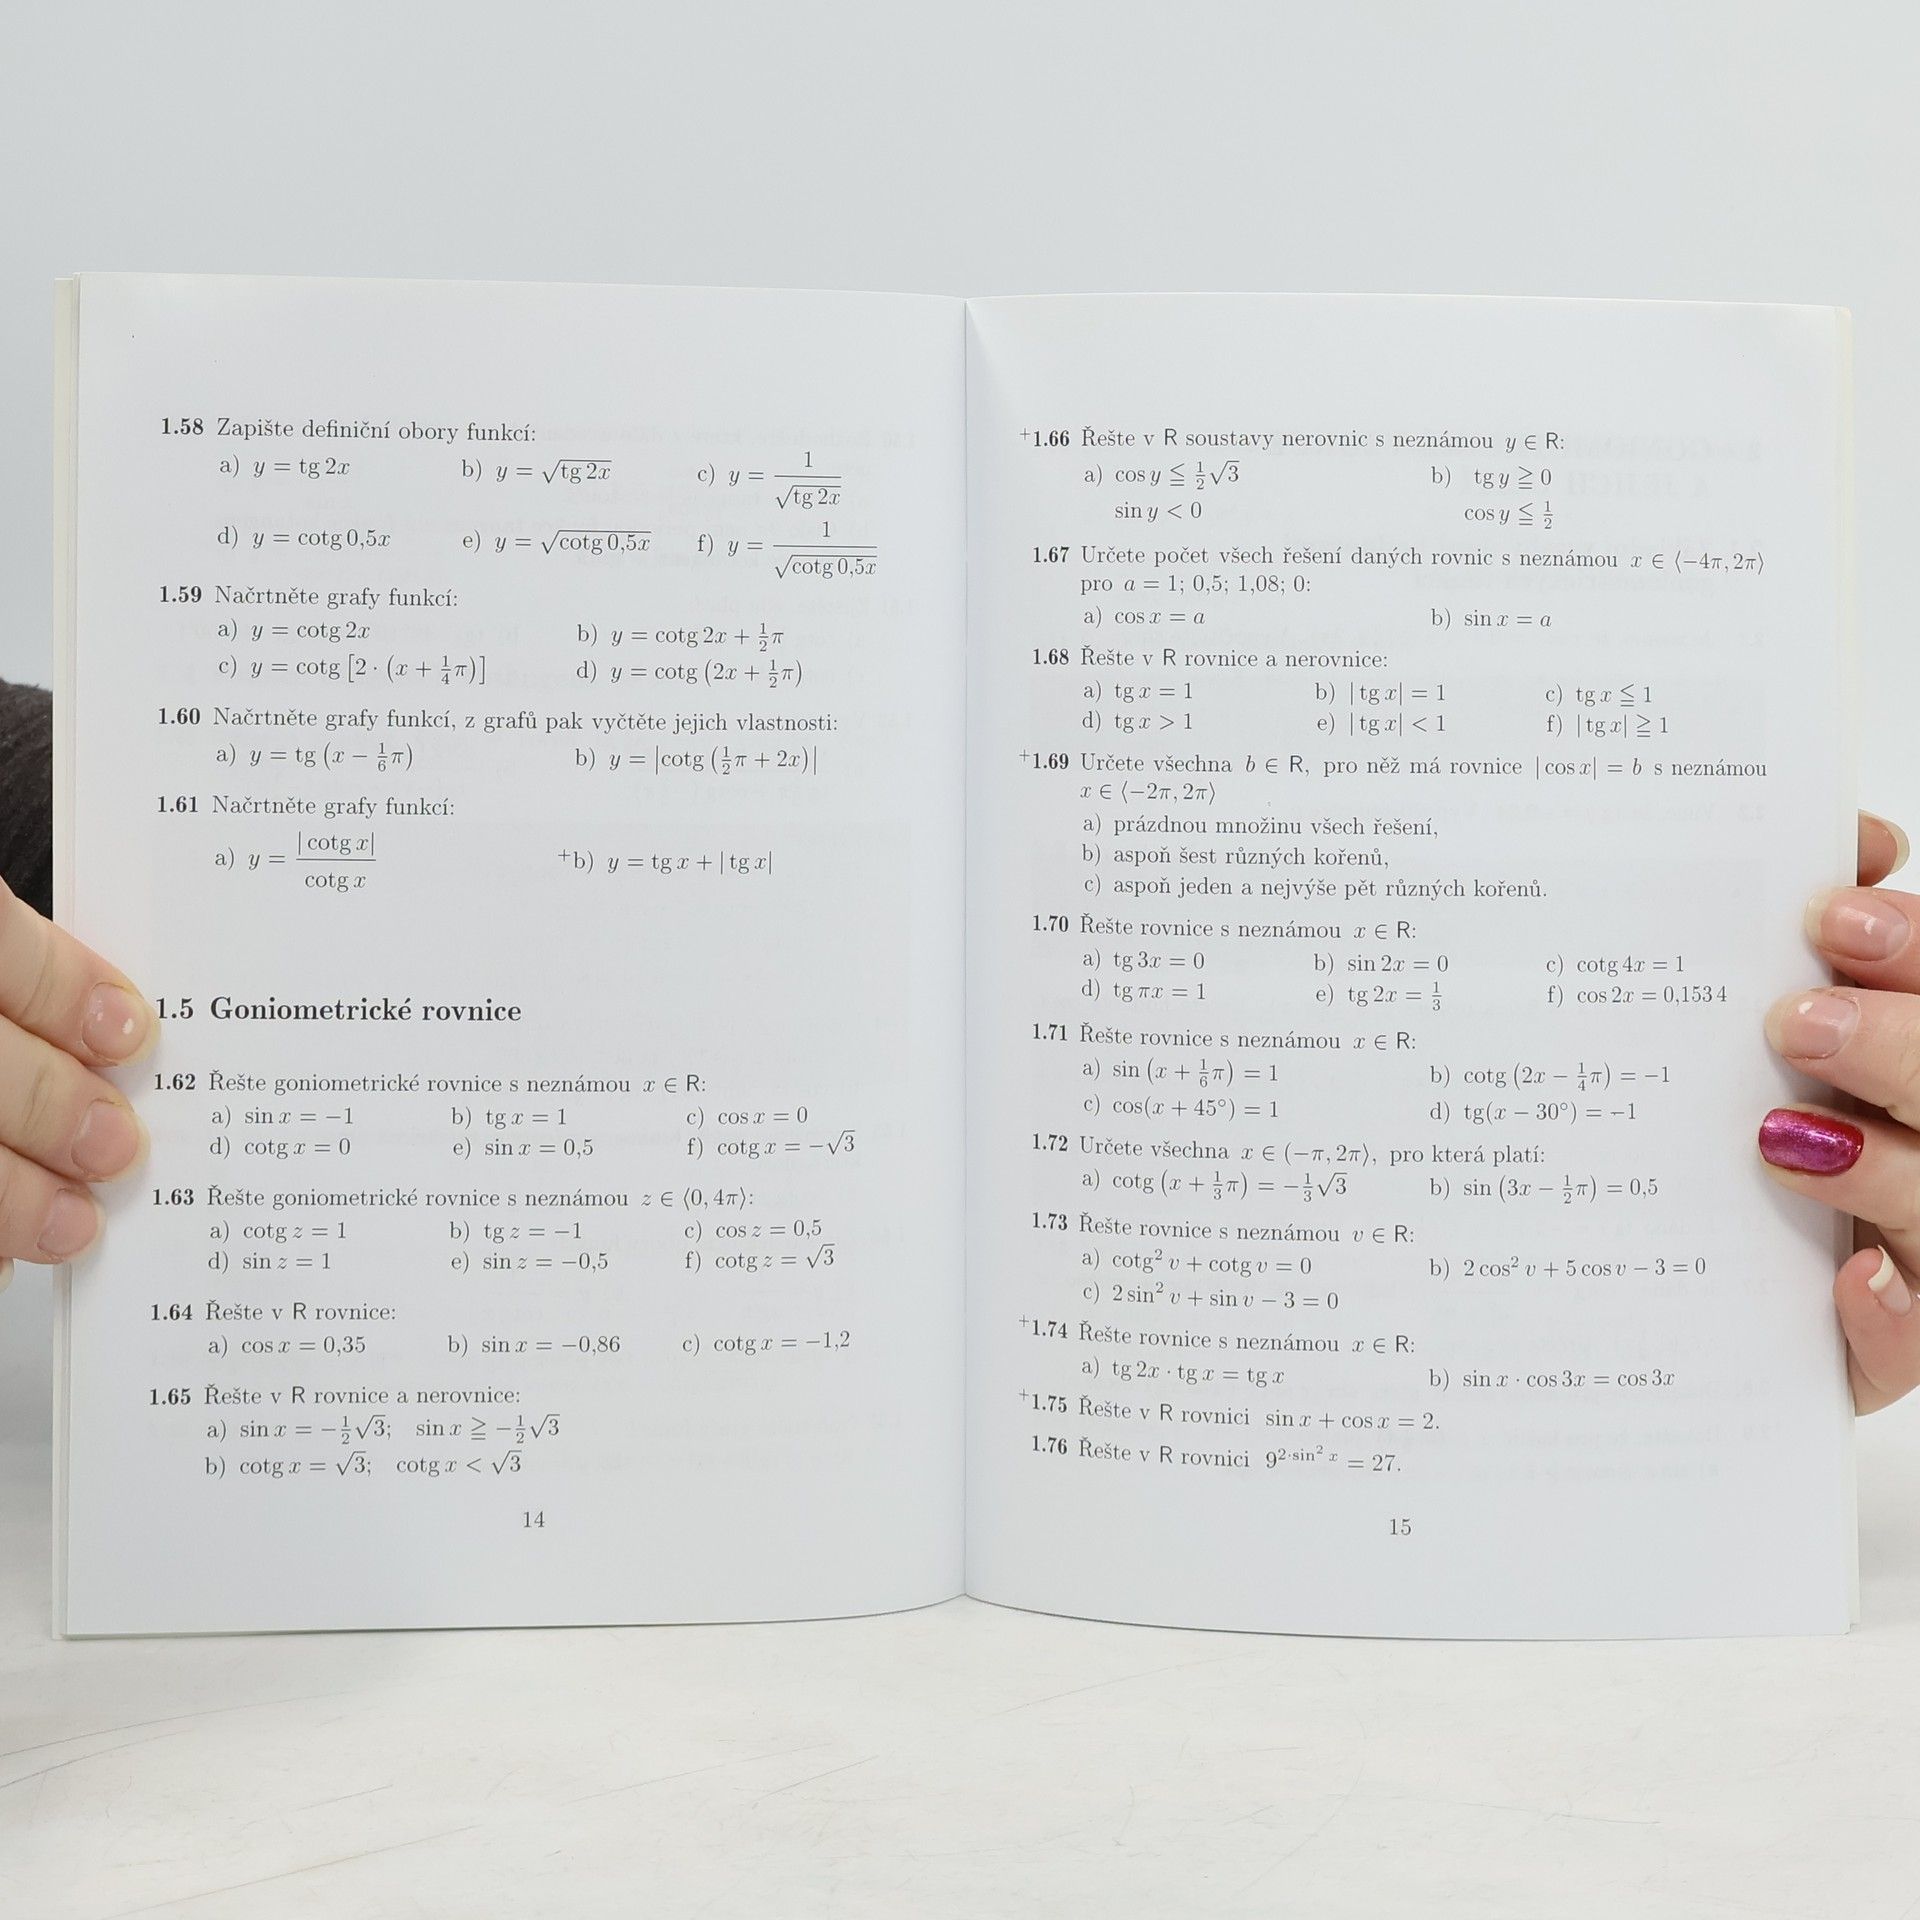 1.58 Zapište definiční obory funkcí:
a) y = tg 2x b) y = √(tg 2x) c) y = 1/√(tg 2x)
d) y = cotg 0,5x e) y = √(cotg 0,5x) f) y = 1/√(cotg 0,5x)
1.59 Načrtněte grafy funkcí:
a) y = cotg 2x b) y = cotg 2x + ½π
c) y = cotg [2 · (x + ¼π)] d) y = cotg (2x + ½π)
1.60 Načrtněte grafy funkcí, z grafů pak vyčtěte jejich vlastnosti:
a) y = tg (x − ⅙π) b) y = |cotg (½π + 2x)|
1.61 Načrtněte grafy funkcí:
a) y = |cotg x|/cotg x +b) y = tg x + |tg x|
1.5 Goniometrické rovnice
1.62 Řešte goniometrické rovnice s neznámou x ∈ R:
a) sin x = −1 b) tg x = 1 c) cos x = 0
d) cotg x = 0 e) sin x = 0,5 f) cotg x = −√3
1.63 Řešte goniometrické rovnice s neznámou z ∈ ⟨0, 4π⟩:
a) cotg z = 1 b) tg z = −1 c) cos z = 0,5
d) sin z = 1 e) sin z = −0,5 f) cotg z = √3
1.64 Řešte v R rovnice:
a) cos x = 0,35 b) sin x = −0,86 c) cotg x = −1,2
1.65 Řešte v R rovnice a nerovnice:
a) sin x = −½√3; sin x ≧ −½√3
b) cotg x = √3; cotg x < √3
14
+1.66 Řešte v R soustavy nerovnic s neznámou y ∈ R:
a) cos y ≦ ½√3 b) tg y ≧ 0
sin y < 0 cos y ≦ ½
1.67 Určete počet všech řešení daných rovnic s neznámou x ∈ ⟨−4π, 2π⟩
pro a = 1; 0,5; 1,08; 0:
a) cos x = a b) sin x = a
1.68 Řešte v R rovnice a nerovnice:
a) tg x = 1 b) |tg x| = 1 c) tg x ≦ 1
d) tg x > 1 e) |tg x| < 1 f) |tg x| ≧ 1
+1.69 Určete všechna b ∈ R, pro něž má rovnice |cos x| = b s neznámou
x ∈ ⟨−2π, 2π⟩
a) prázdnou množinu všech řešení,
b) aspoň šest různých kořenů,
c) aspoň jeden a nejvýše pět různých kořenů.
1.70 Řešte rovnice s neznámou x ∈ R:
a) tg 3x = 0 b) sin 2x = 0 c) cotg 4x = 1
d) tg πx = 1 e) tg 2x = ⅓ f) cos 2x = 0,153 4
1.71 Řešte rovnice s neznámou x ∈ R:
a) sin (x + ⅙π) = 1 b) cotg (2x − ¼π) = −1
c) cos(x + 45°) = 1 d) tg(x − 30°) = −1
1.72 Určete všechna x ∈ (−π, 2π⟩, pro která platí:
a) cotg (x + ⅓π) = −⅓√3 b) sin (3x − ½π) = 0,5
1.73 Řešte rovnice s neznámou v ∈ R:
a) cotg² v + cotg v = 0 b) 2 cos² v + 5 cos v − 3 = 0
c) 2 sin² v + sin v − 3 = 0
+1.74 Řešte rovnice s neznámou x ∈ R:
a) tg 2x · tg x = tg x b) sin x · cos 3x = cos 3x
+1.75 Řešte v R rovnici sin x + cos x = 2.
1.76 Řešte v R rovnici 9^(2·sin² x) = 27.
15